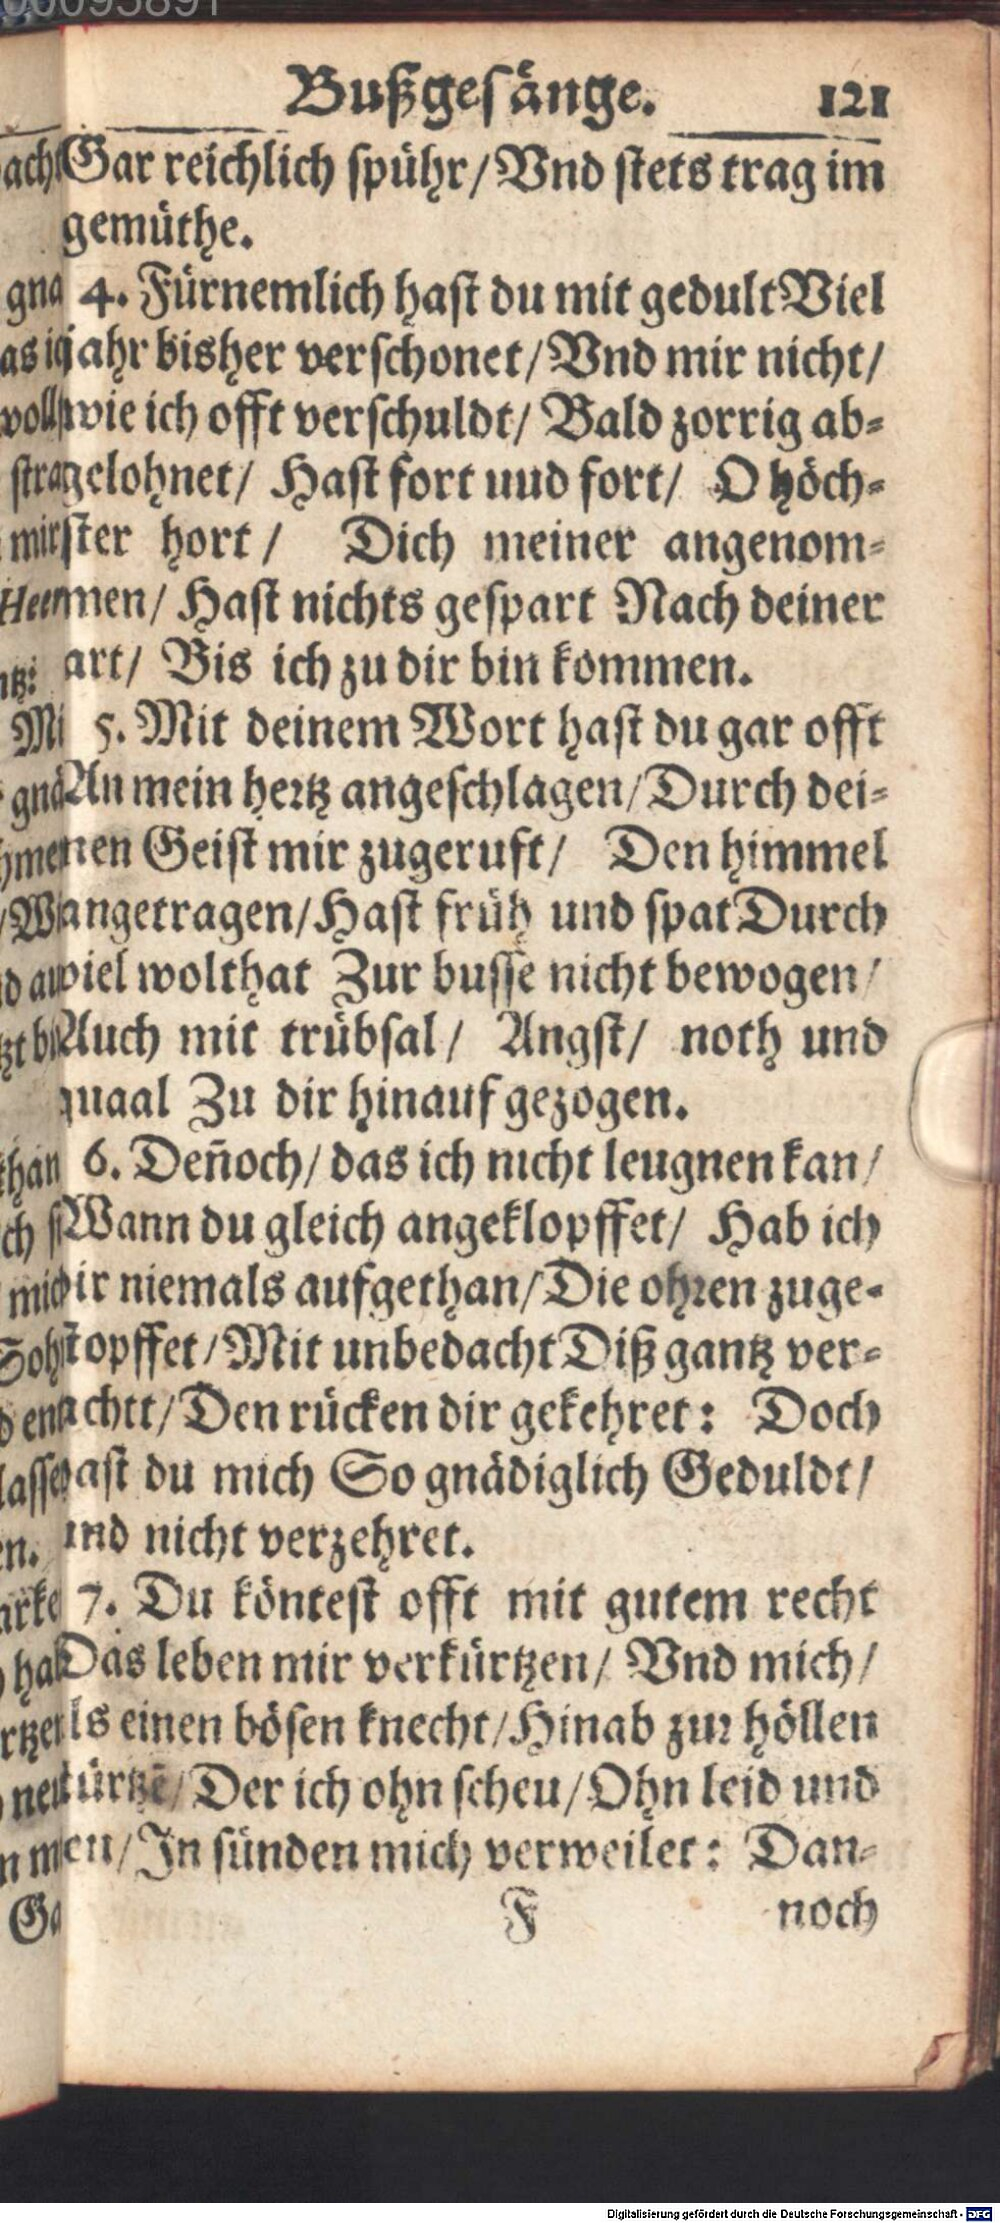 Bußgesänge. 121
Gar reichlich spühr/ Vnd stets trag im
gemüthe.
4. Fürnemlich hast du mit gedult Viel
jahr bisher verschonet/ Vnd mir nicht/
wie ich offt verschuldt/ Bald zorrig ab-
gelohnet/ Hast fort uud fort/ O höch-
ster hort/ Dich meiner angenom-
men/ Hast nichts gespart Nach deiner
art/ Bis ich zu dir bin kommen.
5. Mit deinem Wort hast du gar offt
An mein hertz angeschlagen/ Durch dei-
nen Geist mir zugeruft/ Den himmel
angetragen/ Hast früh und spat Durch
viel wolthat Zur busse nicht bewogen/
Auch mit trübsal/ Angst/ noth und
quaal Zu dir hinauf gezogen.
6. Deñoch/ das ich nicht leugnen kan/
Wann du gleich angeklopffet/ Hab ich
ir niemals aufgethan/ Die ohren zuge-
topffet/ Mit unbedacht Diß gantz ver-
achtt/ Den rücken dir gekehret: Doch
ast du mich So gnädiglich Geduldt/
und nicht verzehret.
7. Du köntest offt mit gutem recht
Das leben mir verkürtzen/ Vnd mich/
ls einen bösen knecht/ Hinab zur höllen
türtzē/ Der ich ohn scheu/ Ohn leid und
eu/ In sünden mich verweilet: Dan-
F noch
Digitalisierung gefördert durch die Deutsche Forschungsgemeinschaft - DFG